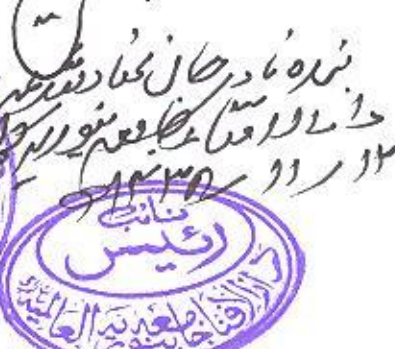 بندہ نادر جان
دار الافتاء جامعہ بنوریہ
۱۲ / ۱۱ / ۱۴۳۵ھ
نائب
رئیس
دار الافتاء جامعہ بنوریہ العالمیۃ